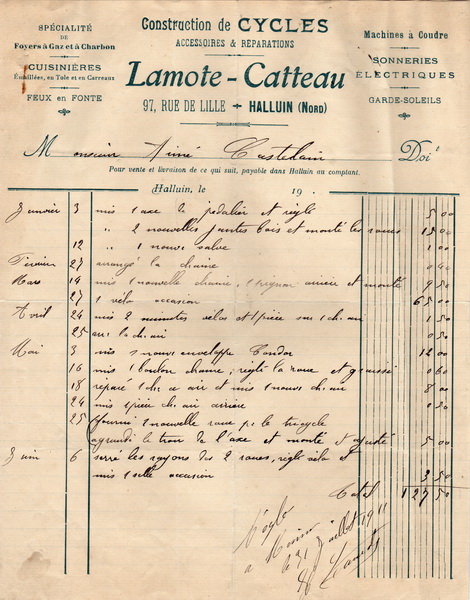 SPÉCIALITÉ
DE
Foyers à Gaz et à Charbon
CUISINIÈRES
Émaillées, en Tole et en Carreaux
FEUX en FONTE
Construction de CYCLES
ACCESSOIRES & RÉPARATIONS
Lamote-Catteau
97, RUE DE LILLE + HALLUIN (NORD)
Machines à Coudre
SONNERIES
ÉLECTRIQUES
GARDE-SOLEILS
Monsieur Aimé Castelain Doit
Pour vente et livraison de ce qui suit, payable dans Halluin au comptant.
Halluin, le 19
Janvier 3 mis 1 axe de pedalier et réglé 5 00
" 2 nouvelles jantes bois et monté les roues 15 00
12 " 1 nouv valve 1 00
Février 27 arrangé la chaine
Mars 14 mis 1 nouvelle chaine, 1 pignon arrière et monté 9 50
27 1 vélo occasion 65 00
Avril 24 mis 2 vélos et 1 pièce sur 1 ch. air 1 50
25 arr la ch. air
Mai 3 mis 1 nouv enveloppe Condor 12 00
16 mis 1 boulon chaine, réglé la roue et graissé 0 60
18 réparé 1 ch air et mis 1 nouv ch. air 8 00
24 mis 1 pièce ch. air arrière
25 fourni 1 nouvelle roue pr le tricycle
agrandi le trou de l'axe et monté et ajusté 5 00
Juin 6 serré les rayons des 2 roues, réglé vélo et
mis 1 selle occasion 3 50
Total 127 50
Réglé
le 31 Juillet 1911